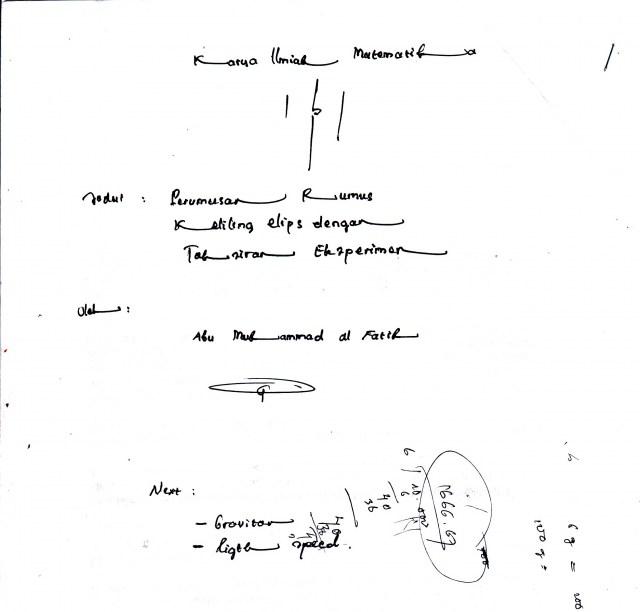 Karya Ilmiah Matematika
Judul : Perumusan Rumus
Keliling elips dengan
Taksiran Eksperimen
Oleh :
Abu Muhammad al Fatih
Next :
- Gravitasi
- ligth speed.
1666.67